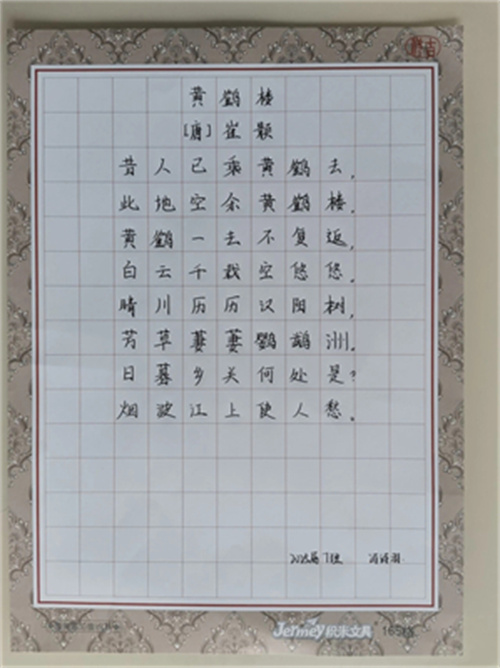 黄鹤楼
[唐]崔颢
昔人已乘黄鹤去,
此地空余黄鹤楼.
黄鹤一去不复返,
白云千载空悠悠.
晴川历历汉阳树,
芳草萋萋鹦鹉洲.
日暮乡关何处是?
烟波江上使人愁.
Jermey积米文具